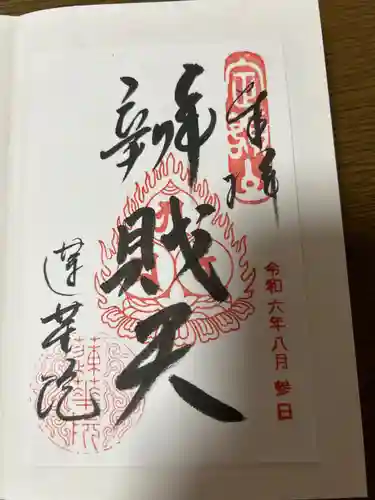 奉拝
辨財天
蓮華院
令和六年八月参日